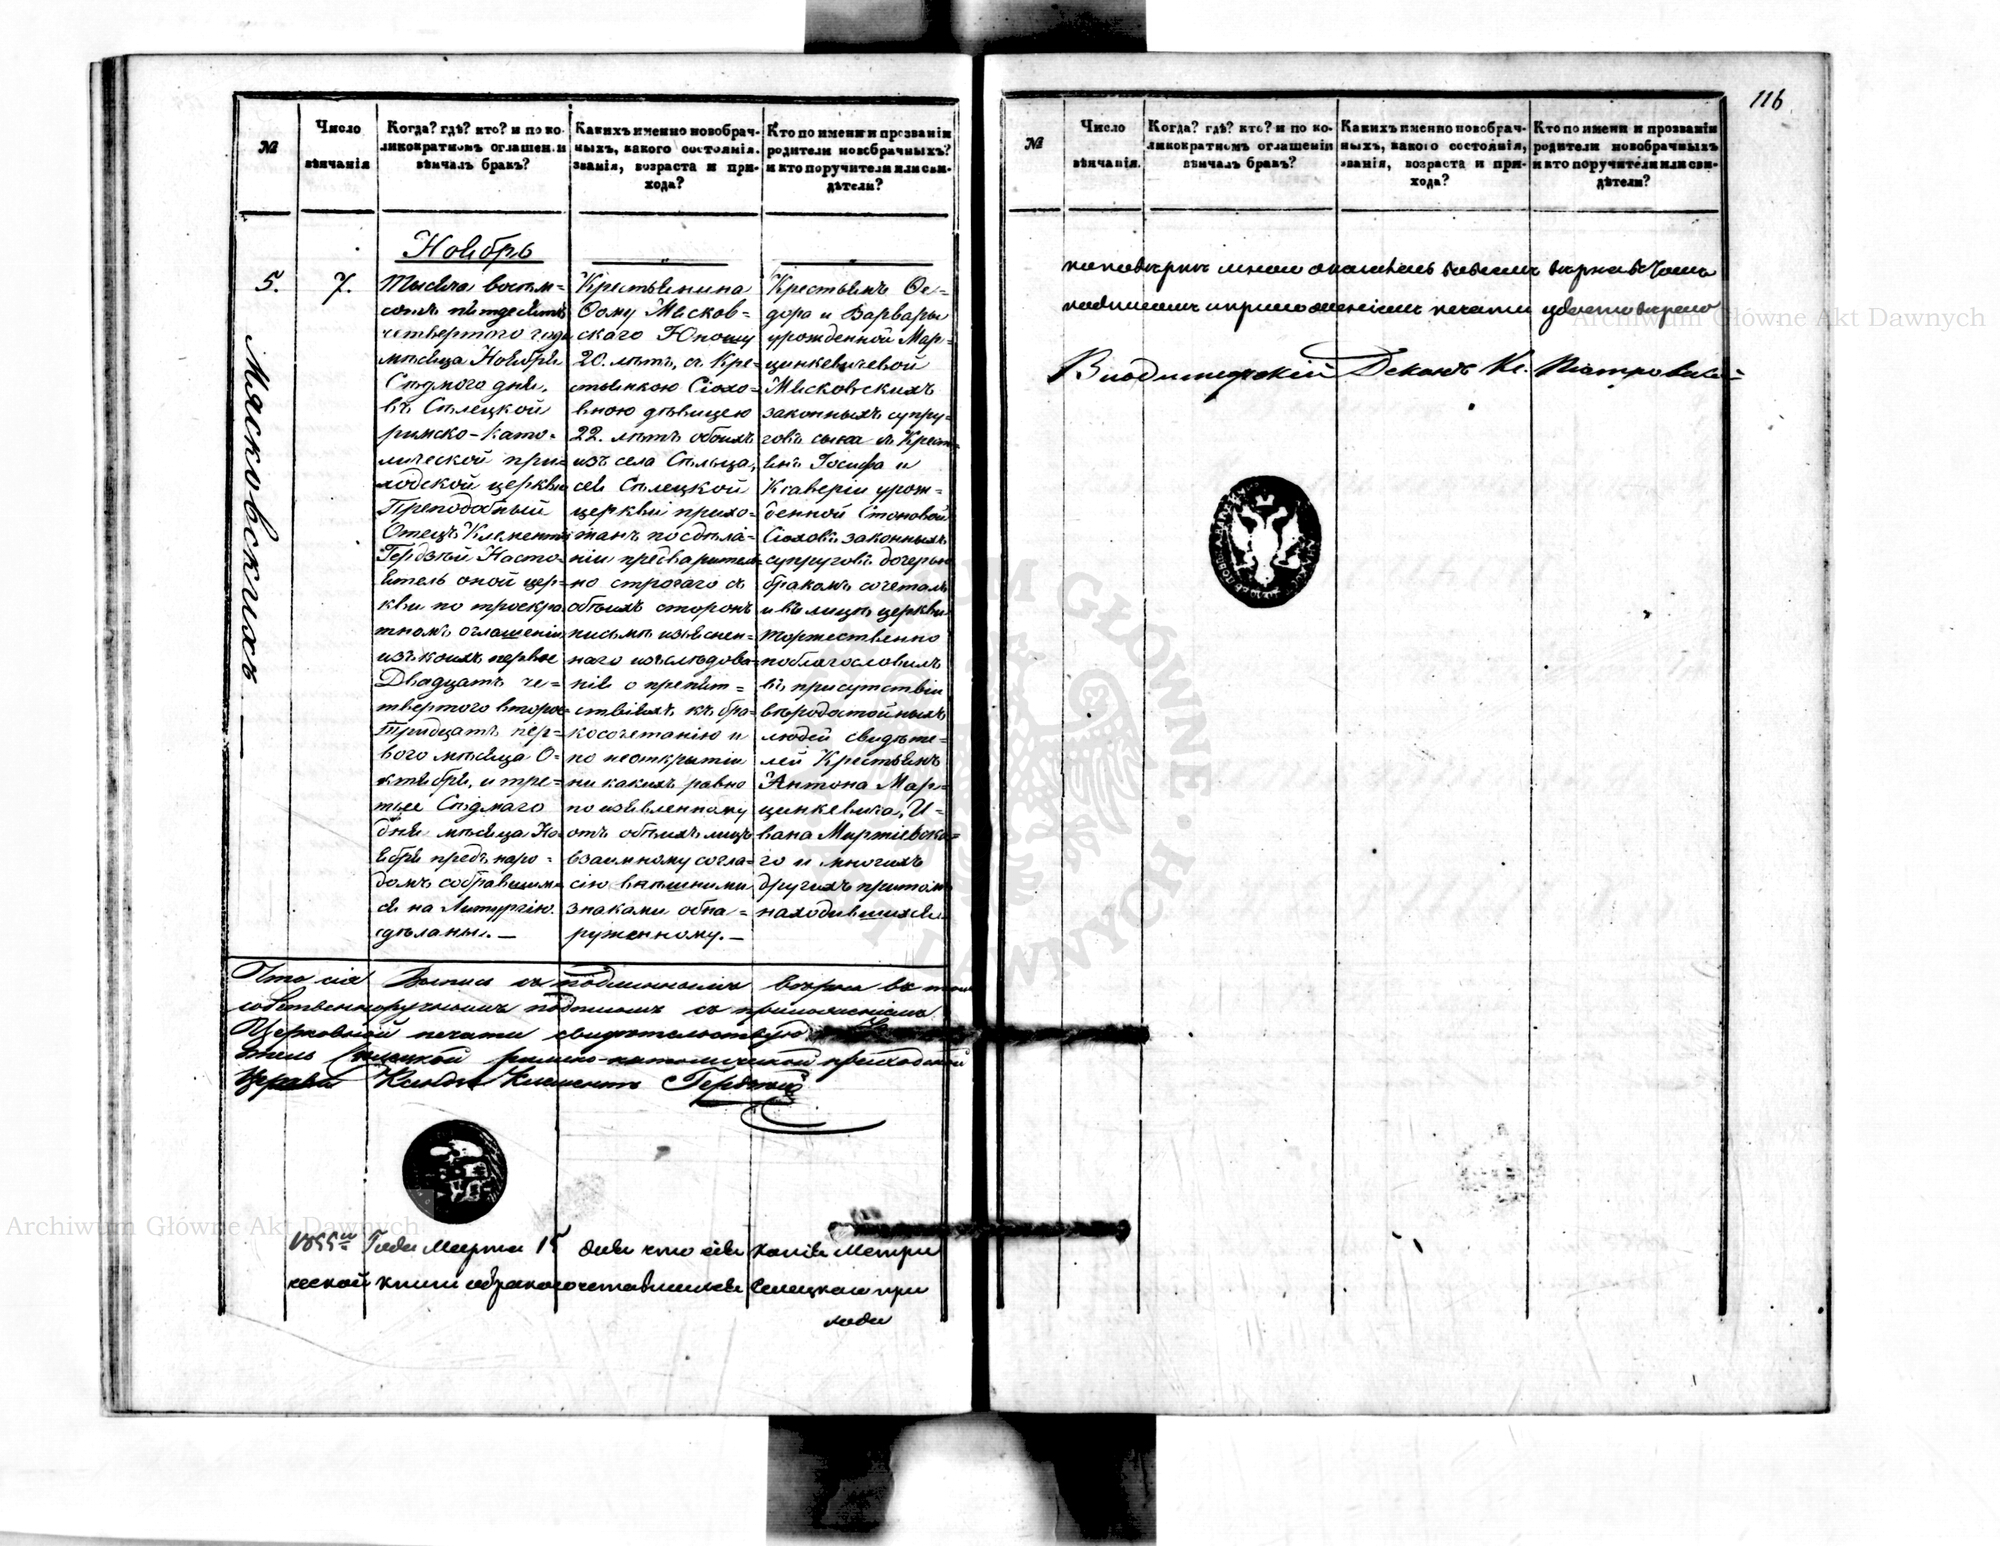 №
Число
вѣнчанія
Когда? гдѣ? кто? и по ко-
ликократномъ оглашеніи
вѣнчалъ бракъ?
Какихъ именно новобрач-
ныхъ, какого состоянія,
званія, возраста и при-
хода?
Кто по имени и прозванію
родители новобрачныхъ?
и кто поручители или сви-
дѣтели?
Мясковскихъ
5.
7.
Ноябрь
Тысяча восем-
сотъ пятдесятъ
четвертого года
мѣсяца Ноября
Седмого дня,
въ Сѣлецкой
римско-като-
лической при-
ходской церкви
Преподобный
Отецъ Климентій
Гердзѣй Насто-
ятель оной цер-
кви по троекра
тномъ оглашеніи
изъ коихъ первое
Двадцать че-
твертого второе
Тридцать пер-
вого мѣсяца О-
ктября, и тре-
тье Седмаго
дня мѣсяца Но
ября предъ наро-
домъ собравшим
ся на Литургію
сдѣланы.—
Крестьянина
Ѳому Мясков-
скаго Юношу
20. лѣтъ, съ Кре-
стьянкою Сіохо-
вною дѣвицею
22. лѣтъ обоихъ
изъ села Сѣльца,
сея Сѣлецкой
церкви прихо-
жанъ по сдѣла-
ніи предварител
но строгаго съ
обѣихъ сторонъ
письмѣ изъяснен-
наго изслѣдова-
нія о препят-
ствіяхъ къ бра-
косочетанію и
по неоткрытіи
никакихъ равно
по изъявленному
отъ обѣихъ лицъ
взаимному согла-
сію внѣшними
знаками обна-
руженному.—
Крестьянъ Ѳе-
дора и Варвары
урожденной Мар-
цинкевичевой
Мясковскихъ
законныхъ супру-
говъ сына съ Крест-
янъ Іосифа и
Ксаверіи урож-
денной
Сіоховъ законныхъ
супруговъ дочерью
бракомъ сочеталъ
и въ лицѣ церкви
торжественно
поблагословилъ
въ присутствіи
вѣродостойныхъ
людей свидѣте-
лей Крестьянъ
Антона Мар-
цинкевича, И-
вана
го и многихъ
другихъ притомъ
находившихся.
Что сія Выпись съ подлиннымъ вѣрна въ томъ
собственноручнымъ подписомъ съ приложеніемъ
Церковной печати свидѣтельствую
тель Сѣлецкой римско-католической приходской
Церкви Ксендзъ Климентъ Гердзѣй
1855 Года Марта 15 дня что сія копія Метри
ческой книги о бракосочетавшихся Селецкаго при
хода
116
№
Число
вѣнчанія.
Когда? гдѣ? кто? и по ко-
ликократномъ оглашеніи
вѣнчалъ бракъ?
Какихъ именно новобрач-
ныхъ, какого состоянія,
званія, возраста и при-
хода?
Кто по имени и прозванію
родители новобрачныхъ
и кто поручители или сви-
дѣтели?
подписомъ и приложеніемъ печати удостовѣряю
Владимірскій Деканъ Кс.
Archiwum Główne Akt Dawnych
Archiwum Główne Akt Dawnych